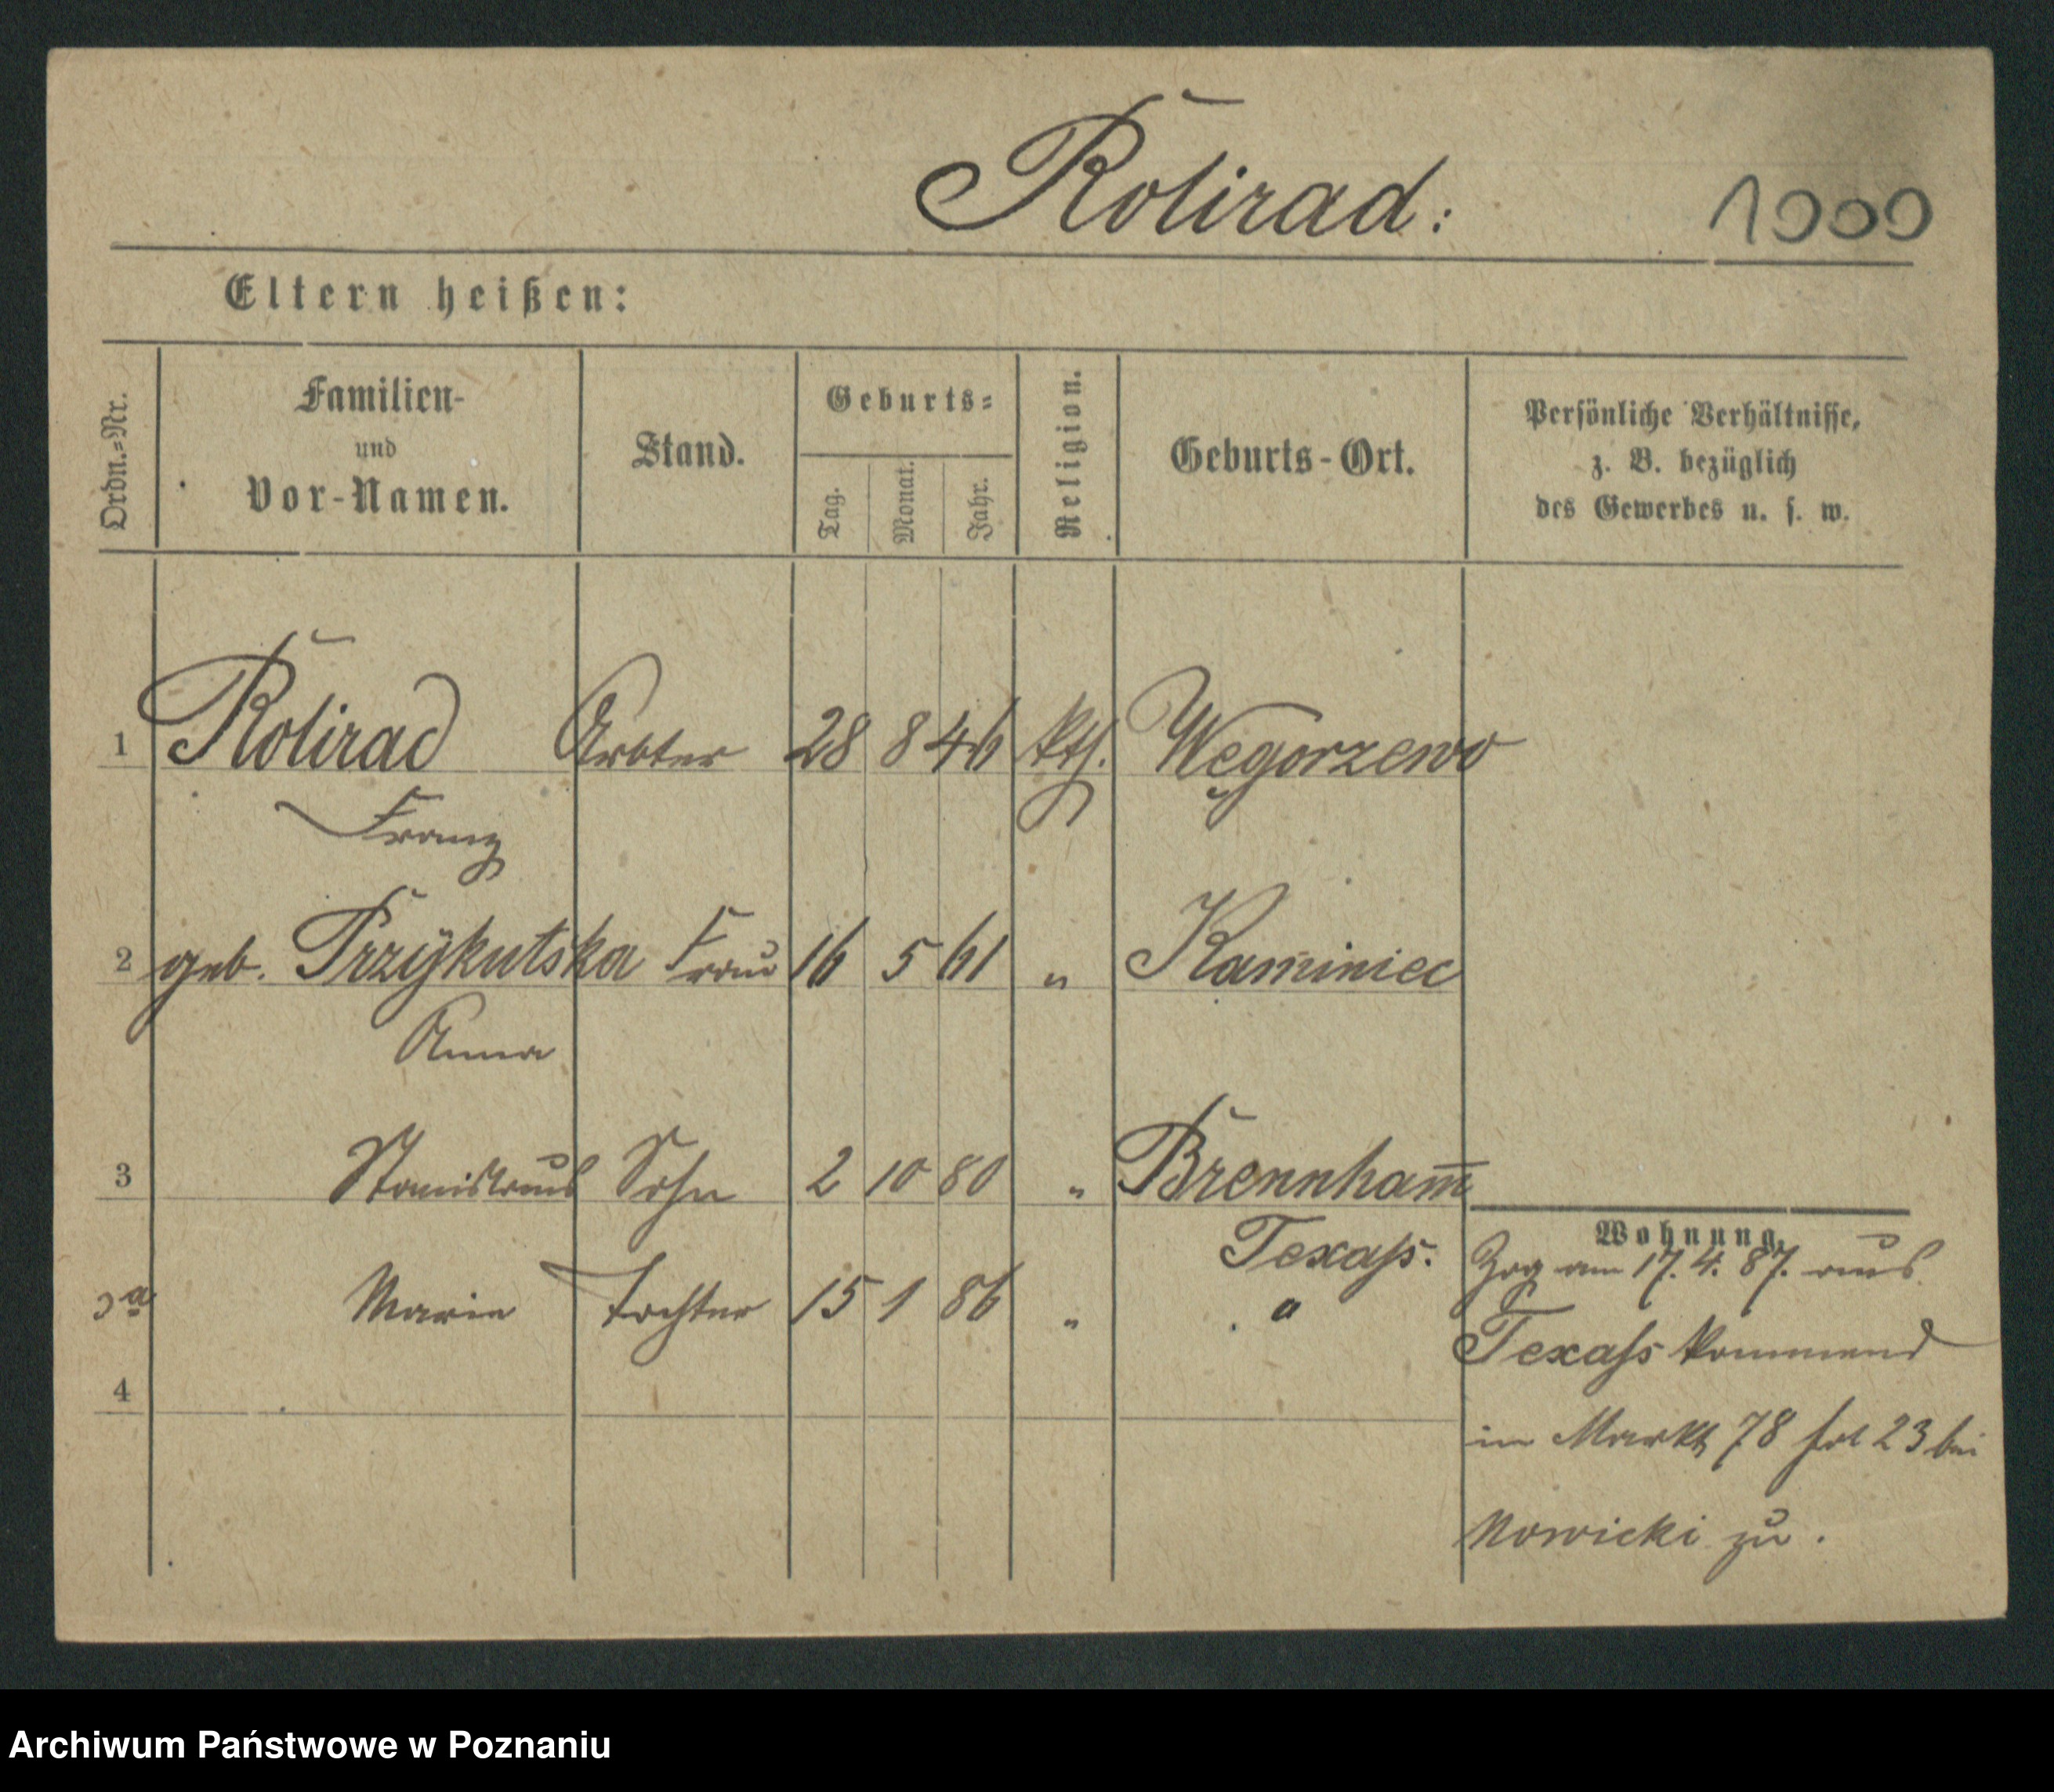 Rolirad: 1000
Eltern heißen:
Ordn.=Nr.
Familien-
und
Vor-Namen.
Stand.
Geburts=
Tag.
Monat.
Jahr.
Religion.
Geburts-Ort.
Persönliche Verhältnisse,
z. B. bezüglich
des Gewerbes u. s. w.
1 Rolirad Arbter 28 8 46 kth. Węgorzewo
Franz
2 geb. Przÿkutska Frau 16 5 61 " Kaminiec
Anna
3 Stanislaus Sohn 2 10 80 " Brennham̅
Texass.
3a Marie Tochter 15 1 86 " "
4
Wohnung.
Zog am 17. 4. 87. aus
Texass kommend
im Markt 78 fol 23 bei
Nowicki zu.
Archiwum Państwowe w Poznaniu